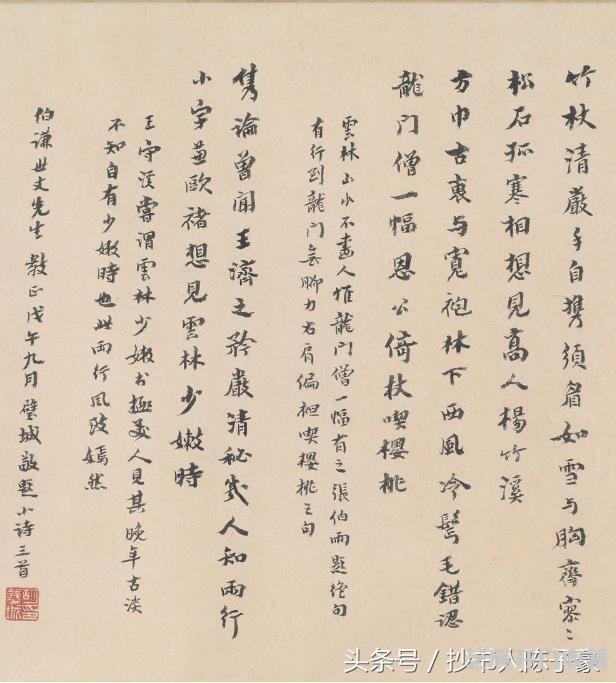 竹杖清嚴手自携須眉如雪与胸齊寥〻
松石孤寒相想見高人楊竹溪
方巾古裹与寬袍林下西風冷鬓毛錯認
龍门僧一幅恩公倚杖喫櫻桃
雲林山水不畫人惟龍门僧一幅有之張伯雨題絶句
有行到龍门無脚力右肩偏袒喫櫻桃之句
雋論曾聞王濟之矜嚴清秘幾人知兩行
小字兼歐褚想見雲林少嫩時
王守溪嘗謂雲林少嫩書極美人見其晚年古淡
不知自有少嫩時也此兩行風致嫣然
伯谦世丈先生教正戊午九月璧城敬題小诗三首
头条号 / 抄书人陈子豪